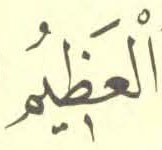 الْعَظِيمُ